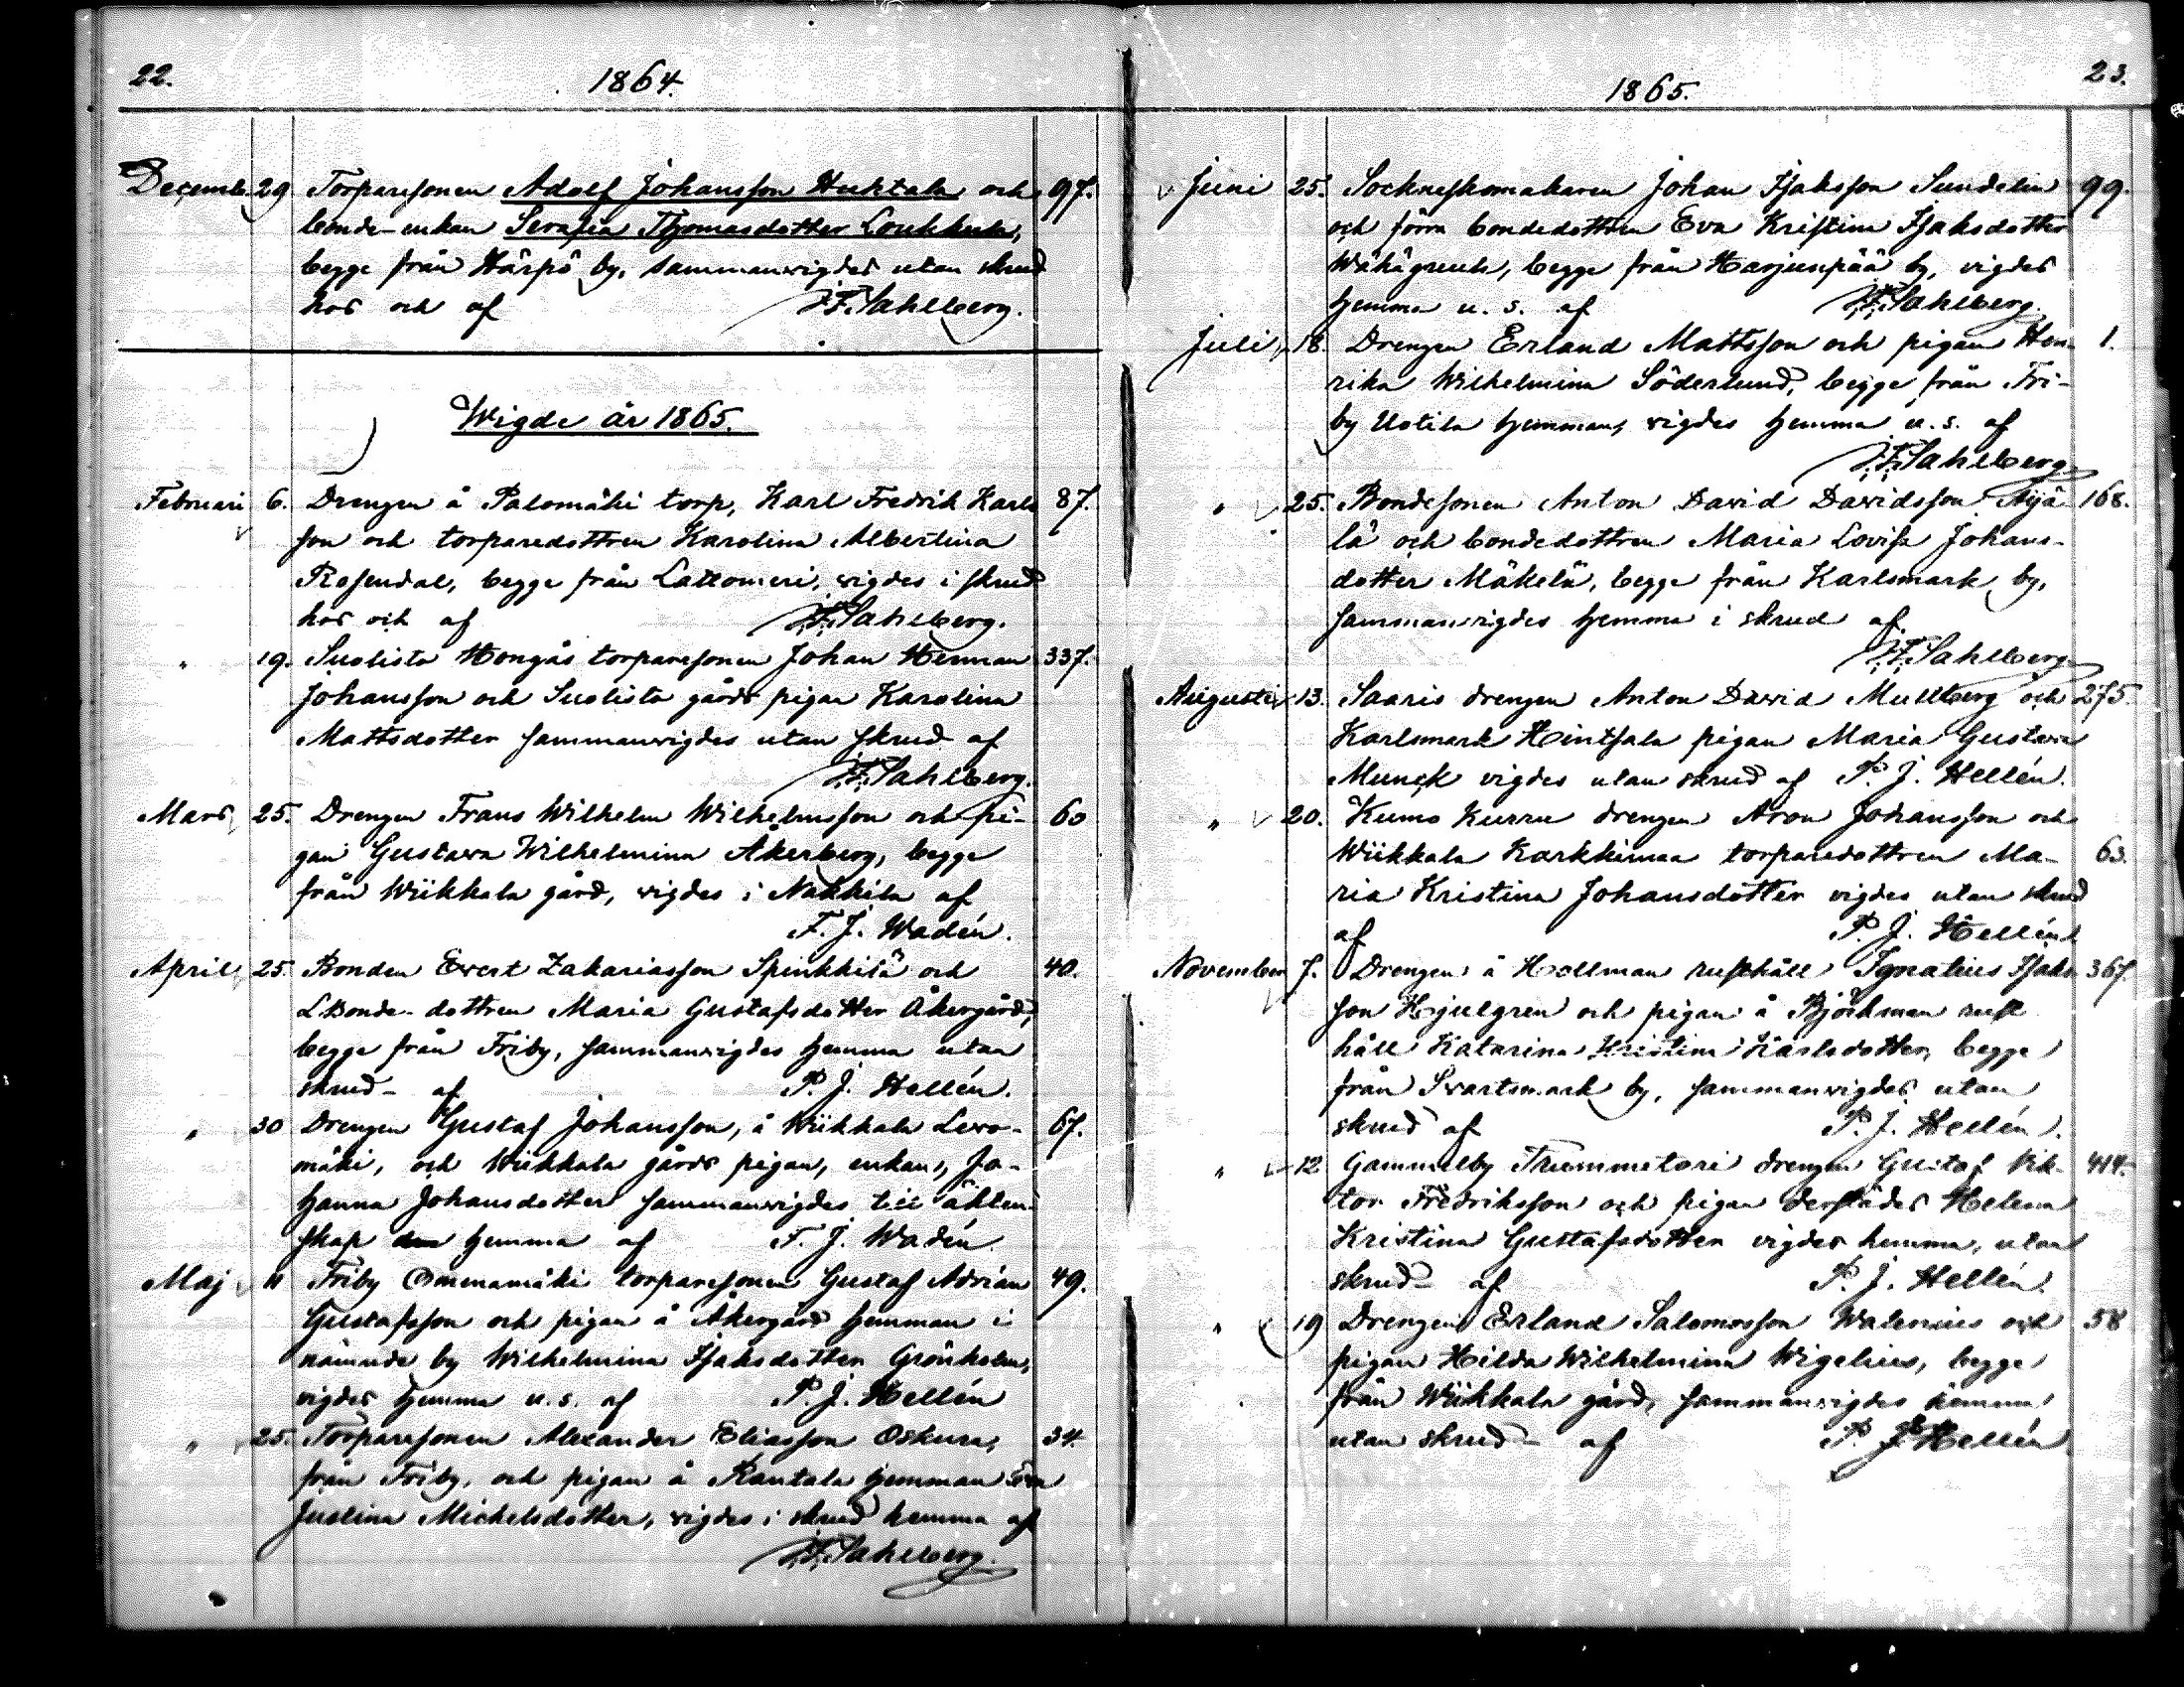 22.
1864.
Decemb. 29 Torparesonen Adolf Johansson Huktala och 97.
bonde-enkan Serafia Thomasdotter Loukkula,
begge från Härpö by, sammanvigdes utan skrud
hos och af F. Sahlberg.
Wigde år 1865.
Februari 6. Drengen å Palomäki torp, Karl Fredrik Karls 87.
son och torparedottren Karolina Albertina
Rosendal, begge från Lattomeri, vigdes i skrud
hos och af F. Sahlberg.
" 19. Suolisto Hongås torparesonen Johan Herman 337.
Johansson och Suolisto gårds pigan Karolina
Mattsdotter sammanvigdes utan skrud af
F. Sahlberg.
Mars 25. Drengen Frans Wilhelm Wilhelmsson och pi- 60
gan Gustava Wilhelmina Åkerberg, begge
från Wiikkala gård, vigdes i Nakkila af
F. J. Wadén.
April 25. Bonden Evert Zakariasson Spinkkilä och 40.
Bonde-dottren Maria Gustafsdotter Åkergård,
begge från Friby, sammanvigdes hemma utan
skrud - af P. J. Hellén.
" 30 Drengen Gustaf Johansson, å Wiikkala Levo- 67.
mäki, och Wiikkala gårds pigan, enkan, Jo-
hanna Johansdotter sammanvigdes till äkten-
skap hemma af F. J. Wadén
Maj 11 Friby Omenamäki torparesonen Gustaf Adrian 49.
Gustafsson och pigan å Åkergård hemman i
nämnde by Wilhelmina Isaksdotter Grönholm,
vigdes hemma u. s. af P. J. Hellén
" 25. Torparesonen Alexander Eliasson Oskura, 34.
från Friby, och pigan å Rantala hemman Eva
Justina Michelsdotter, vigdes i skrud hemma af
F. Sahlberg.
1865.
23.
Juni 25. Sockneskomakaren Johan Isaksson Sundelin 99.
och förra bondedottren Eva Kristina Isaksdotter
begge från Harjunpää by, vigdes
hemma u. s. af F. Sahlberg.
Juli 18. Drengen Erland Mattsson och pigan Hen- 1.
rika Wilhelmina Söderlund, begge från Fri-
by Uotila hemman, vigdes hemma u. s. af
F. Sahlberg
" 25. Bondesonen Anton David Davidsson Äijä- 168.
lä och bondedottren Maria Lovisa Johans-
dotter Mäkelä, begge från Karlsmark by,
sammanvigdes hemma i skrud af
F. Sahlberg
Augusti 13. Saaris drengen Anton David Mullberg och 275.
Karlsmark Hintsala pigan Maria Gustava
Munck vigdes utan skrud af P. J. Hellén.
" 20. Kumo Kurru drengen Aron Johansson och
Wiikkala Karkkimaa torparedottren Ma- 63.
ria Kristina Johansdotter vigdes utan skrud
af P. J. Hellén
November 7. Drengen å Hollman rusthåll Ignatius Isaks 367.
son Hjulgren och pigan å Björkman rust
håll Katarina Kristina Karlsdotter, begge
från Svartsmark by, sammanvigdes utan
skrud af P. J. Hellén.
" 12 Gammelby Trummetari drengen Gustaf Vik- 414.
tor Fredriksson och pigan derstädes Helena
Kristina Gustafsdotter vigdes hemma, utan
skrud - af P. J. Hellén.
" 19 Drengen Erland Salomosson Walenius och 58
pigan Hilda Wilhelmina Wigelius, begge
från Wiikkala gård, sammanvigdes hemma
utan skrud - af P. J. Hellén